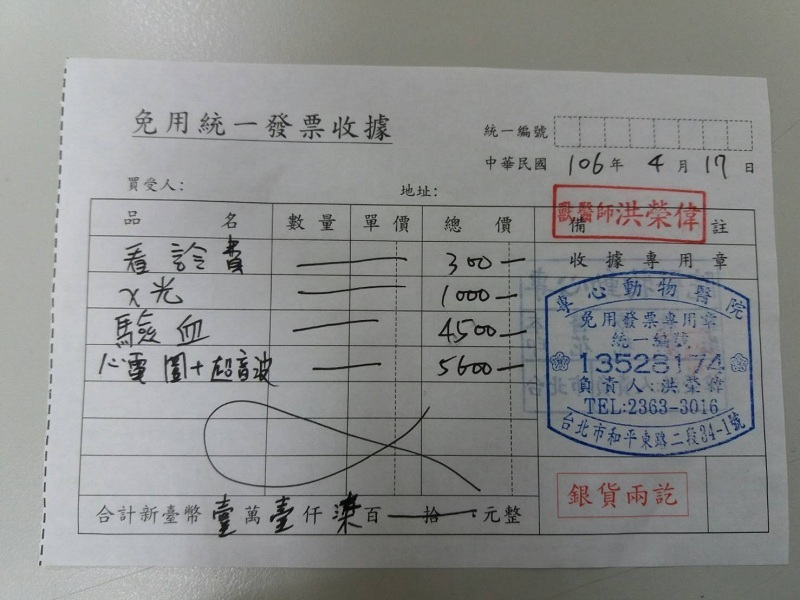 免用統一發票收據
統一編號
中華民國 106年 4月17日
買受人：
地址：
品名 數量 單價 總價 備註
獸醫師洪榮偉
收據專用章
看診費 300
X光 1000
驗血 4500
心電圖+超音波 5600
專心動物醫院
免用發票專用章
統一編號
13528174
負責人：洪榮偉
TEL:2363-3016
台北市和平東路二段34-1號
合計新臺幣 壹萬壹仟柒百拾元整
銀貨兩訖